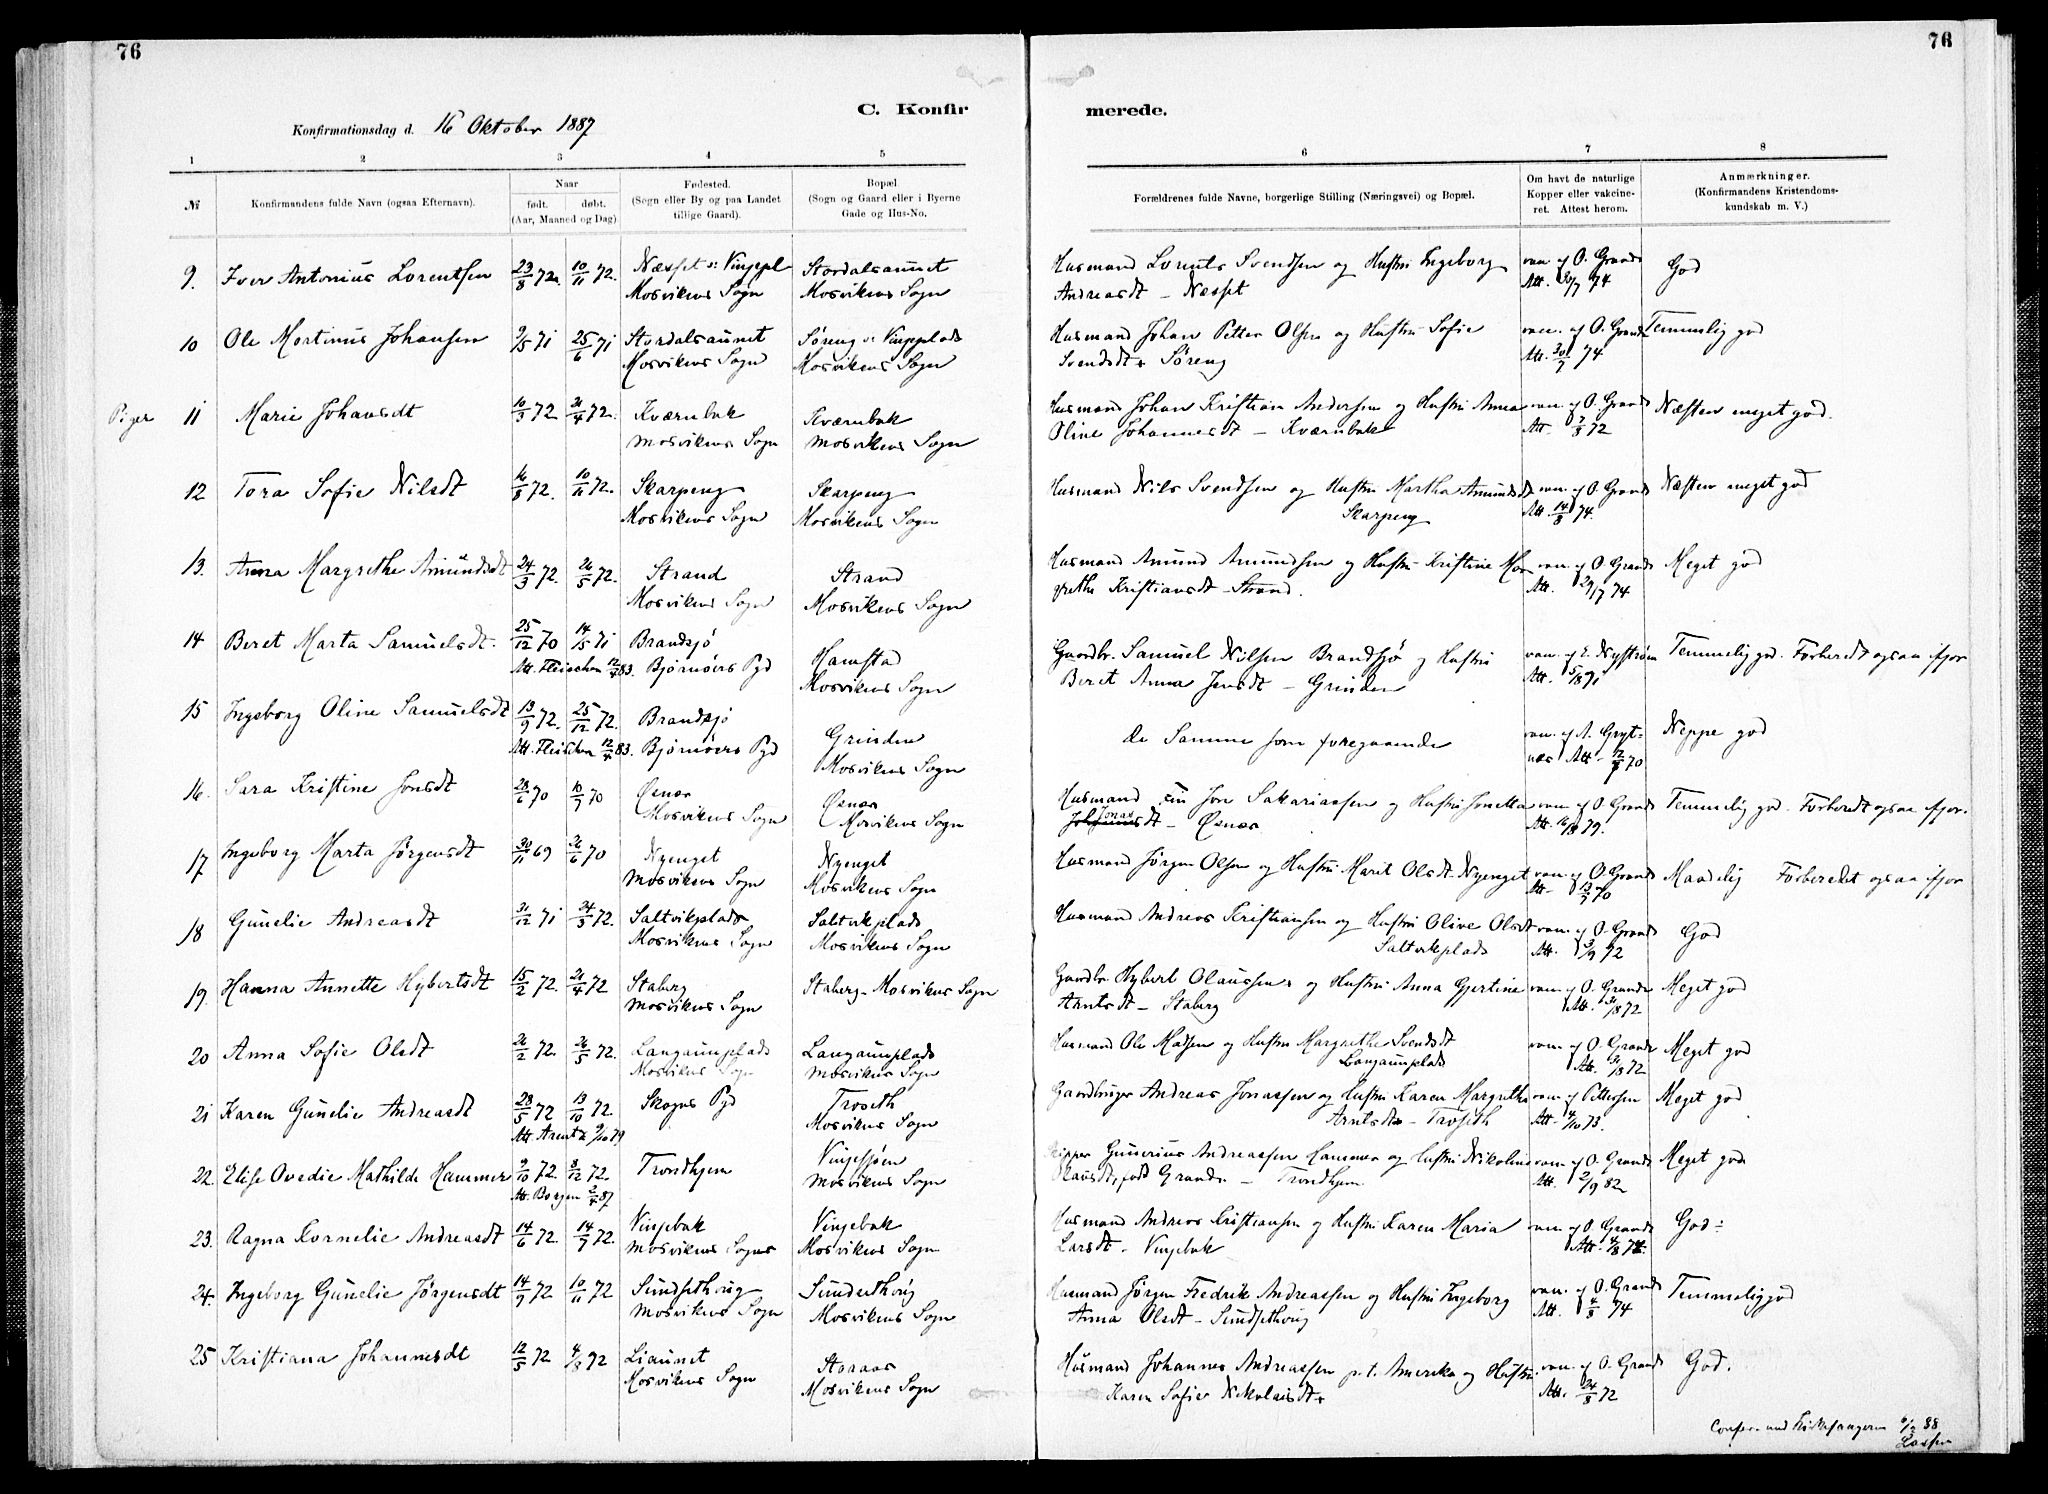 76
76
C. Konfir
merede.
Konfirmationsdag d. 16 Oktober 1887
1 2 3 4 5 6 7 8
№
Konfirmandens fulde Navn (ogsaa Efternavn).
Naar
født. døbt.
(Aar, Maaned og Dag)
Fødested.
(Sogn eller By og paa Landet
tillige Gaard).
Bopæl
(Sogn og Gaard eller i Byerne
Gade og Hus-No.
Forældrenes fulde Navne, borgerlige Stilling (Næringsvei) og Bopæl.
Om havt de naturlige
Kopper eller vakcine-
ret. Attest herom.
Anmærkninger.
(Konfirmandens Kristendoms-
kundskab m. V.)
9. Iver Antonius Lorentsen 23/8 72. 10/11 72. Næsset Stordalsaunet Husmand Lorents Svendsen og Hustru Ingeborg vac. af O. Grande God
Mosvikens Sogn Mosvikens Sogn Andreasdt – Næsset Att. 30/7 74
10 Ole Martinus Johansen 9/5 71 25/6 71 Stordalsaunet Søreng Husmand Johan Petter Olsen og Hustru Sofie vac. af O. Grande Temmelig god
Mosvikens Sogn Mosvikens Sogn Svendsdt Søreng Att. 30/7 74
Piger 11 Marie Johansdt 10/3 72 21/4 72. Kværnbak Kværnbak Husmand Johan Kristian Andersen og Hustru Anna vac. af O. Grande Næsten meget god.
Mosvikens Sogn Mosvikens Sogn Oline Johannesdt – Kværnbak Att. 72
12 Tora Sofie Nilsdt 16/8 72. 10/11 72. Skarpeng Skarpeng Husmand Nils Svendsen og Hustru Martha Amundsdt vac. af O. Grande Næsten meget god
Mosvikens Sogn Mosvikens Sogn Skarpeng Att. 14/8 74.
13. Anna Margrethe Amundsdt 24/3 72. 26/5 72. Strand Strand Husmand Amund Amundsen og Hustru Kristine Mar vac. af O. Grande Meget god
Mosvikens Sogn Mosvikens Sogn grethe Kristiansdt – Strand. Att. 29/7 74
14 Beret Marta Samuelsdt. 25/12 70 14/5 71 Brandsjø Hamstad Gaardbr. Samuel Nilsen Brandsjø og Hustru vac. af E. Nystrøm Temmelig god. Forberedt ogsaa ifjor
Att. Fleischer 12/4 83. Bjørnøers Pgd Mosvikens Sogn Beret Anna Jensdt – Grinden Att. 5/8 71
15 Ingeborg Oline Samuelsdt 13/9 72. 25/12 72. Brandsjø Grinden de Samme som foregaaende vac. af A. Gryt- Neppe god
Att. Fleischer 12/4 83. Bjørnøers Pgd Mosvikens Sogn næs Att – 70
16. Sara Kristine Jonsdt 28/6 70 10/7 70 Øsnes Øsnes Husmand Jon Sakariassen og Hustru Jonetta vac. af O. Grande Temmelig god. Forberedt ogsaa ifjor.
Mosvikens Sogn Mosvikens Sogn Jonasdt – Øsnes Att. 16/8 79.
17. Ingeborg Marta Jørgensdt 30/11 69 26/6 70 Nyenget Nyenget Husmand Jørgen Olsen og Hustru Marit Olsdt. Nyenget vac. af O. Grande Maadelig Forberedt ogsaa ifjor
Mosvikens Sogn Mosvikens Sogn Att – 70
18 Gunelie Andreasdt 31/12 71 24/3 72. Saltvikplads Saltvikplads Husmand Andreas Kristiansen og Hustru Olive Olsdt vac. af O. Grande God
Mosvikens Sogn Mosvikens Sogn Saltvikplads Att. 3/9 72
19. Hanna Annette Hybertsdt 15/2 72. 21/4 72 Staberg Staberg – Mosvikens Sogn Gardbr. Hybert Olaussen og Hustru Anna Gjertine vac. af O. Grande Meget god
Mosvikens Sogn Arntsdt – Staberg Att. 31/8 72
20 Anna Sofie Olsdt 26/2 72. 26/5 72. Langaunplads Langaunplads Husmand Ole Madsen og Hustru Margrethe Svendsdt vac. af O. Grande Meget god
Mosvikens Sogn Mosvikens Sogn Langaunplads Att. 31/8 72
21 Karen Gunelie Andreasdt 28/5 72 13/10 72. Skogns Pgd Troseth Gardbruger Andreas Jonassen og Hustru Karen Margrethe vac. af Pettersen Meget god
Att. Arentz 9/10 79 Mosvikens Sogn Arntsdt – Troseth Att. 4/10 73.
22. Elise Ovedie Mathilde Hammer 9/10 72. 8/12 72. Trondhjem Vinjesjøen Skipper Gunerius Andreassen Hammer og Hustru Nikoline vac. af O. Grande Meget god
Att. Borgen 2/4 87 Mosvikens Sogn Olausdt, født Grande. – Trondhjem Att. 2/9 82
23. Ragna Kornelie Andreasdt 14/6 72. 14/7 72. Vinjebak Vinjebak Husmand Andreas Kristiansen og Hustru Karen Maria vac. af O. Grande God
Mosvikens Sogn Mosvikens Sogn Larsdt. Vinjebak Att. 4/8 74.
24. Ingeborg Gunelie Jørgensdt 14/9 72 10/11 72 Sundsethaug Sundsethaug Husmand Jørgen Fredrik Andreassen og Hustru Ingeborg vac. af O. Grande Temmelig god
Mosvikens Sogn Mosvikens Sogn Anna Olsdt – Sundsethaug Att. 4/8 74
25 Kristiana Johannesdt 12/5 72 4/8 72 Liaunet Storaas Husmand Johannes Andreassen p.t. Amerika og Hustru vac. af O. Grande God.
Mosvikens Sogn Mosvikens Sogn Karen Sofie Nikolaisdt Att. 24/8 72
Confer. med Kirkesangeren 88